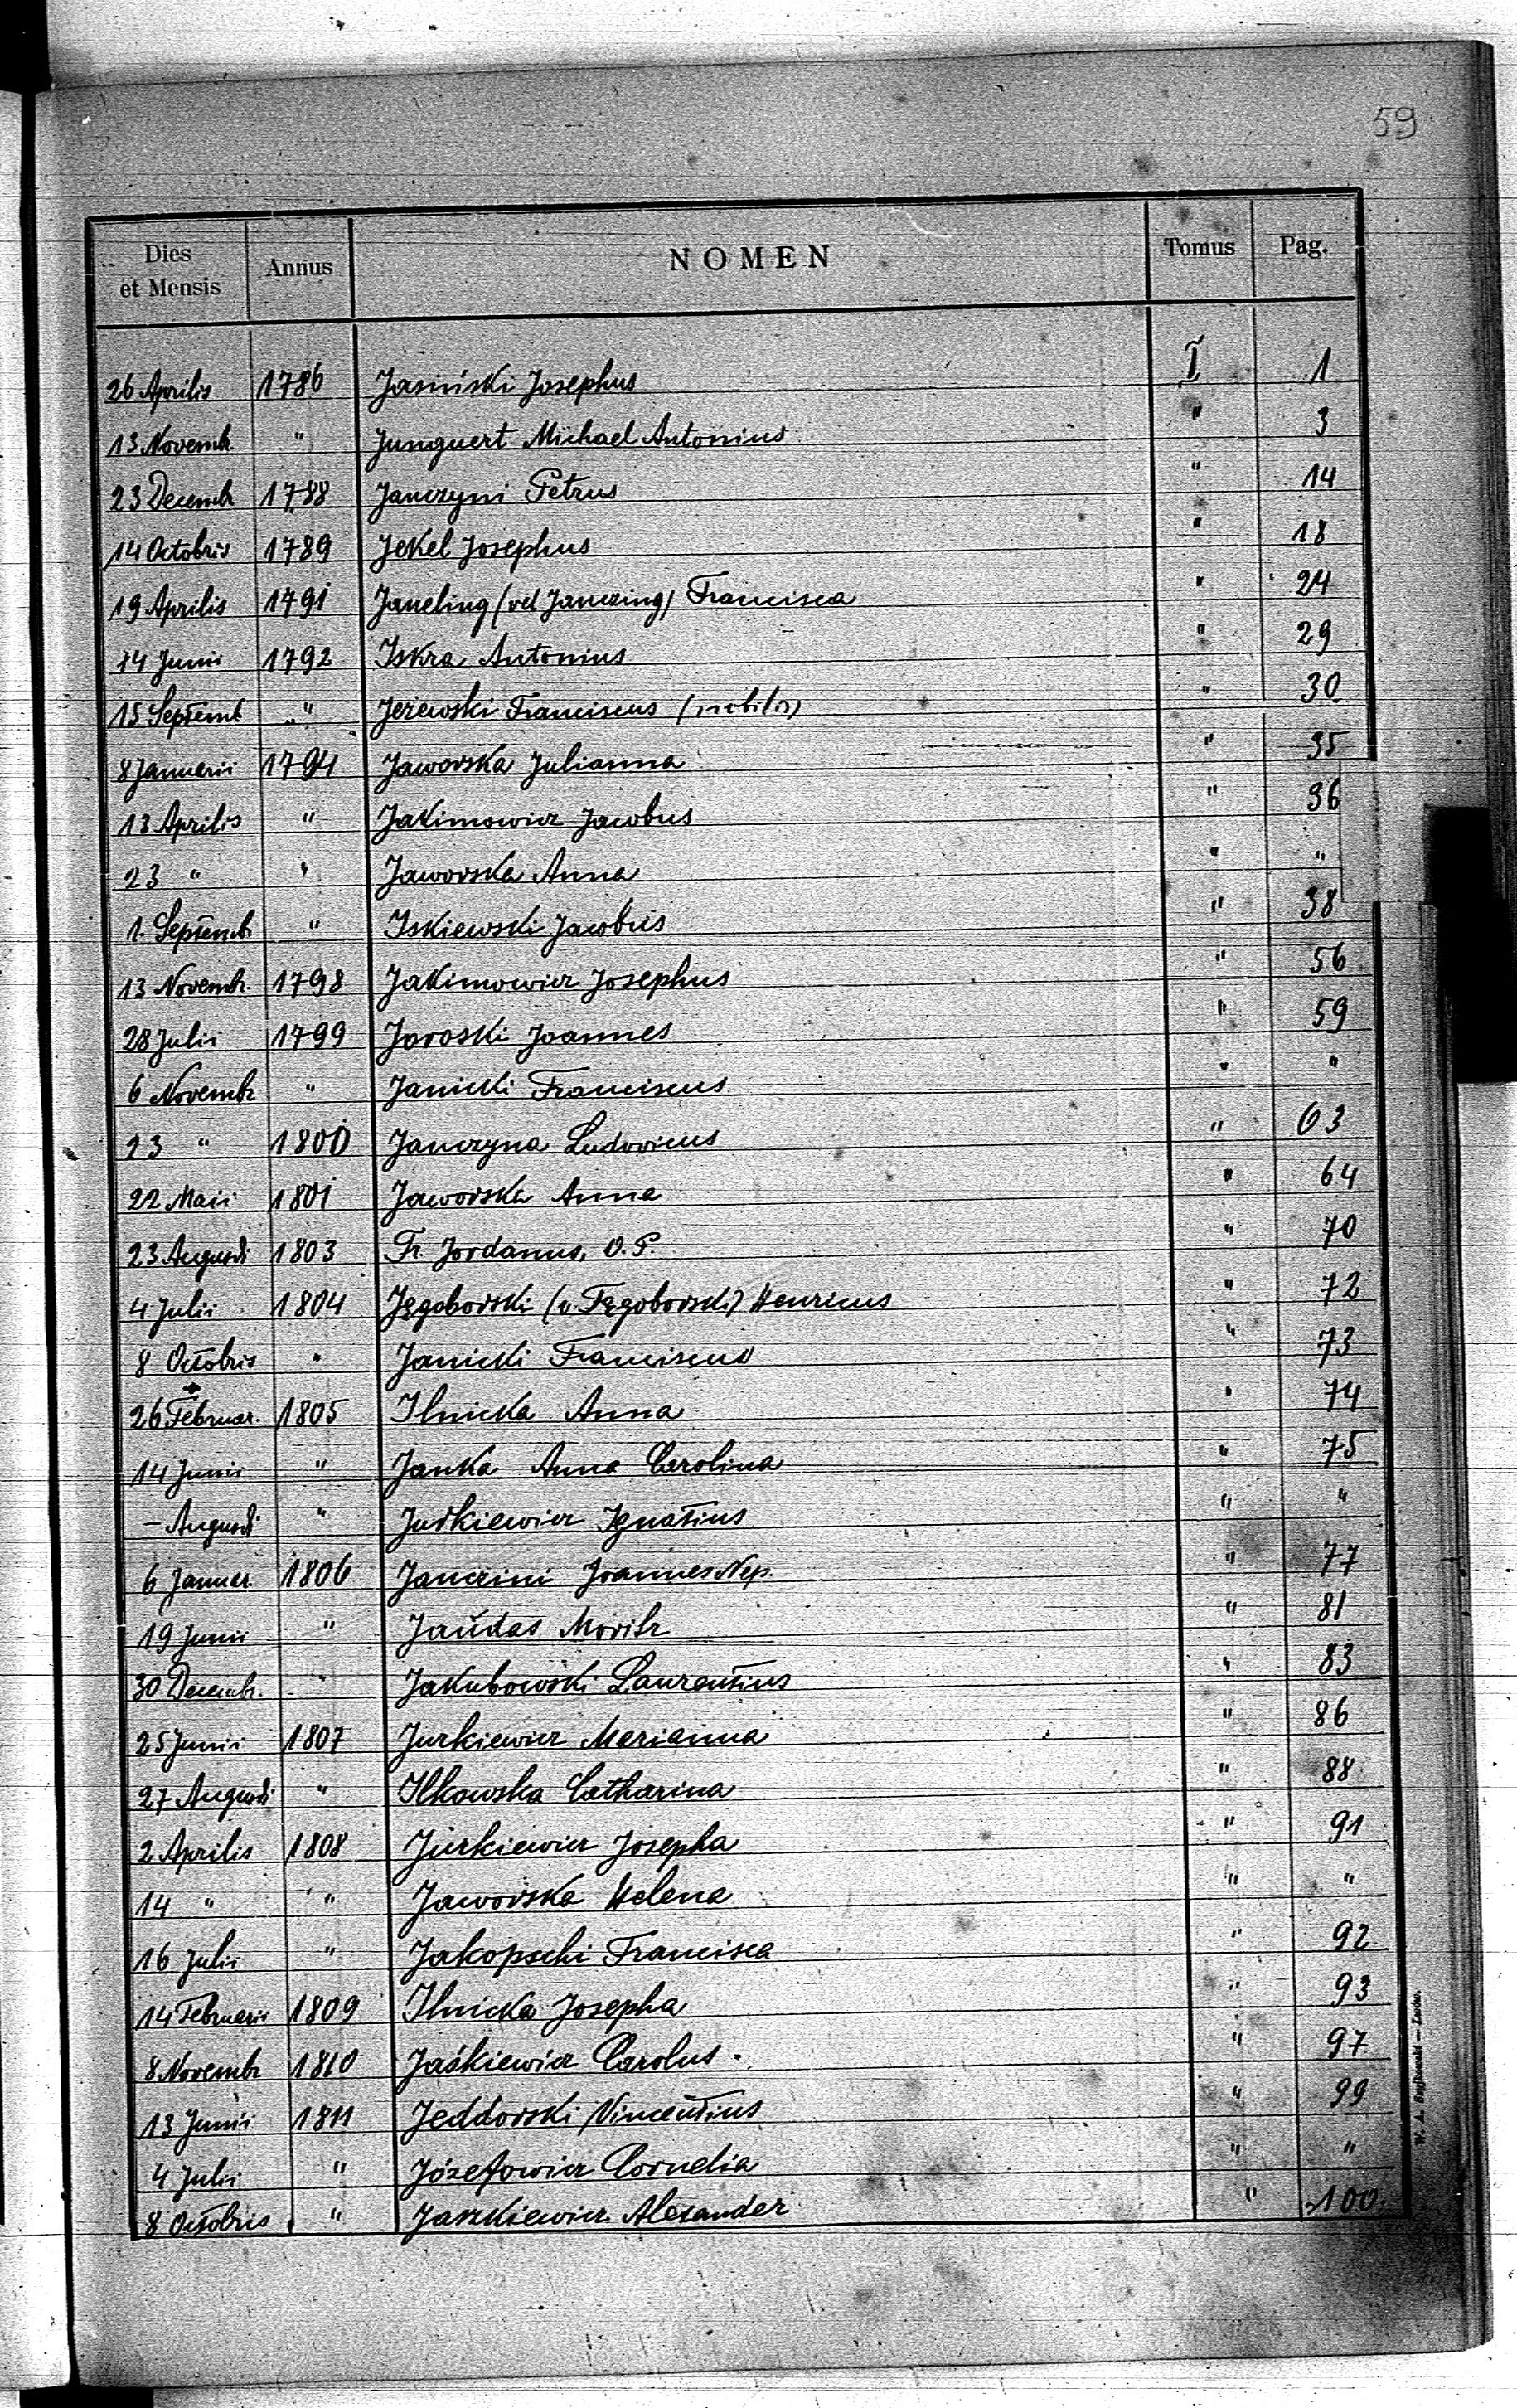 59
Dies et Mensis Annus NOMEN Tomus Pag.
26 Aprilis 1786 Jasiński Josephus I 1
13 Novemb. " Junguert Michael Antonius " 3
23 Decemb 1788 Janczyni Petrus " 14
14 Octobris 1789 Jekel Josephus " 18
19 Aprilis 1791 Janeling (vel Janczing) Francisca " 24
14 Junii 1792 Iskra Antonius " 29
15 Septemb " Jeżewski Franciscus (nobilis) " 30
8 Januarii 1794 Jaworska Julianna " 35
13 Aprilis " Jakimowicz Jacobus " 36
23 " " Jaworska Anna " "
1. Septemb " Iskiewski Jacobus " 38
13 Novembr. 1798 Jakimowicz Josephus " 56
28 Julii 1799 Jaroski Joannes " 59
6 Novembr " Janicki Franciscus " "
23 " 1800 Janczyna Ludovicus " 63
22 Maii 1801 Jaworska Anna " 64
23 Augusti 1803 Fr. Jordanus, O.P. " 70
4 Julii 1804 Jęgoborski (v. Tęgoborski) Henricus " 72
8 Octobris " Janicki Franciscus " 73
26 Februar. 1805 Ilnicka Anna " 74
14 Junii " Janka Anna Carolina " 75
– Augusti " Jurkiewicz Ignatius " "
6 Januar. 1806 Janczini Joannes Nep. " 77
19 Junii " Jaŭdas Moritz " 81
30 Decembr. " Jakubowski Laurentius " 83
25 Junii 1807 Jurkiewicz Marianna " 86
27 Augusti " Ilkowska Catharina " 88
2 Aprilis 1808 Jurkiewicz Josepha " 91
14 " " Jaworska Helena " "
16 Julii " Jakopschi Francisca " 92
14 Februarii 1809 Ilnicka Josepha " 93
8 Novembr 1810 Jaśkiewicz Carolus. " 97
13 Junii 1811 Jeddorski Vincentius " 99
4 Julii " Józefowicz Cornelia " "
8 Octobris " Jaszkiewicz Alexander " 100